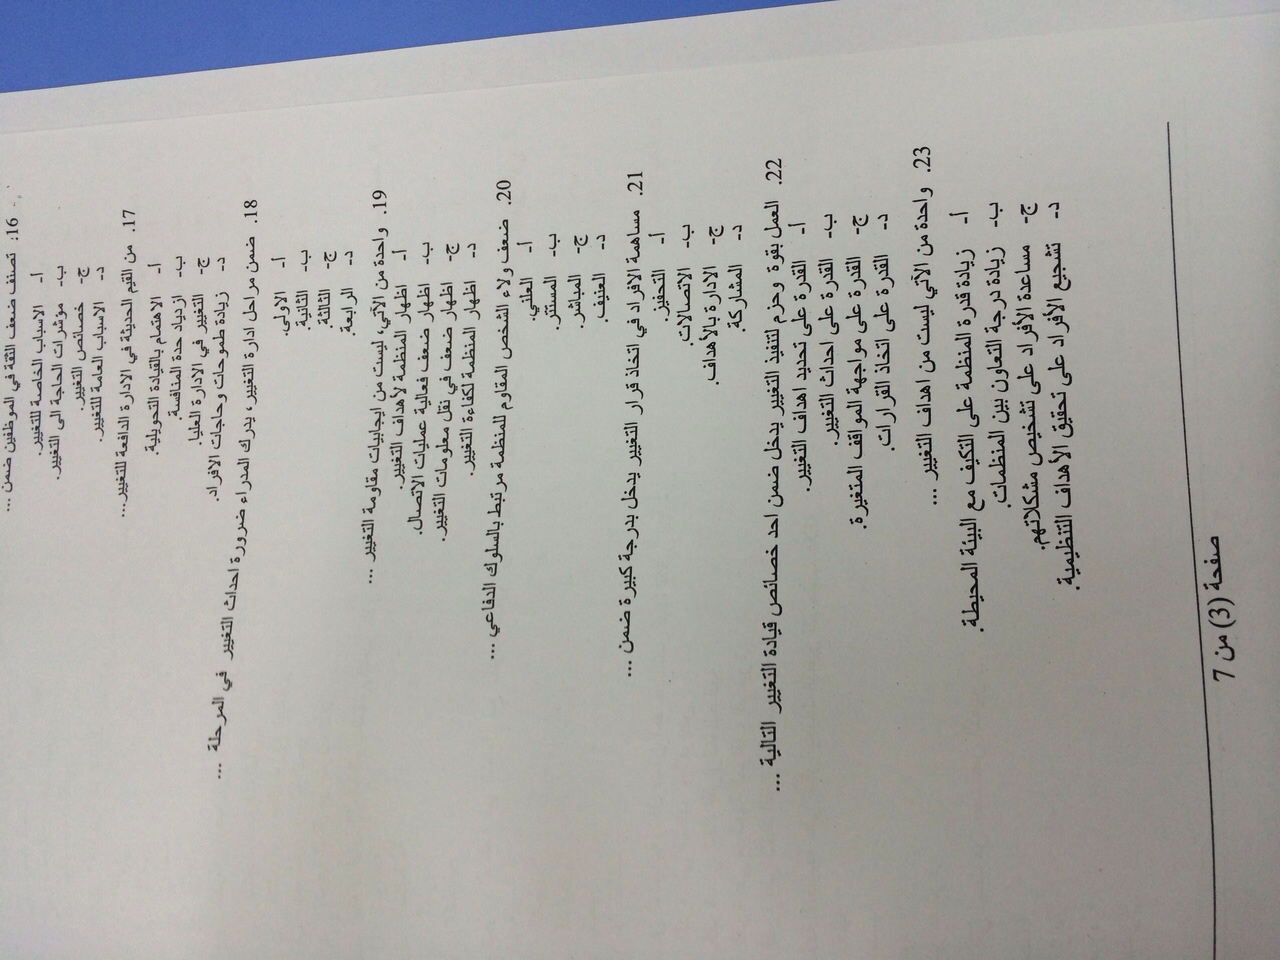 16. تصنف ضعف الثقة في الموظفين ضمن ...
أ- الاسباب الخاصة للتغيير.
ب- مؤشرات الحاجة الى التغيير.
ج- خصائص التغيير.
د- الاسباب العامة للتغيير.
17. من القيم الحديثة في الادارة الدافعة للتغيير...
أ- الاهتمام بالقيادة التحويلية.
ب- ازدياد حدة المنافسة.
ج- التغيير في الادارة العليا.
د- زيادة طموحات وحاجات الافراد.
18. ضمن مراحل ادارة التغيير، يدرك المدراء ضرورة احداث التغيير في المرحلة ...
أ- الاولى.
ب- الثانية.
ج- الثالثة.
د- الرابعة.
19. واحدة من الآتي، ليست من ايجابيات مقاومة التغيير ...
أ- اظهار المنظمة لأهداف التغيير.
ب- اظهار ضعف فعالية عمليات الاتصال.
ج- اظهار ضعف في نقل معلومات التغيير.
د- اظهار المنظمة لكفاءة التغيير.
20. ضعف ولاء الشخص المقاوم للمنظمة مرتبط بالسلوك الدفاعي ...
أ- العلني.
ب- المستتر.
ج- المباشر.
د- العنيف.
21. مساهمة الافراد في اتخاذ قرار التغيير يدخل بدرجة كبيرة ضمن ...
أ- التحفيز.
ب- الاتصالات.
ج- الادارة بالأهداف.
د- المشاركة.
22. العمل بقوة وحزم لتنفيذ التغيير يدخل ضمن احد خصائص قيادة التغيير التالية ...
أ- القدرة على تحديد اهداف التغيير.
ب- القدرة على احداث التغيير.
ج- القدرة على مواجهة المواقف المتغيرة.
د- القدرة على اتخاذ القرارات.
23. واحدة من الآتي ليست من اهداف التغيير ...
أ- زيادة قدرة المنظمة على التكيف مع البيئة المحيطة.
ب- زيادة درجة التعاون بين المنظمات.
ج- مساعدة الأفراد على تشخيص مشكلاتهم.
د- تشجيع الأفراد على تحقيق الأهداف التنظيمية.
صفحة (3) من 7